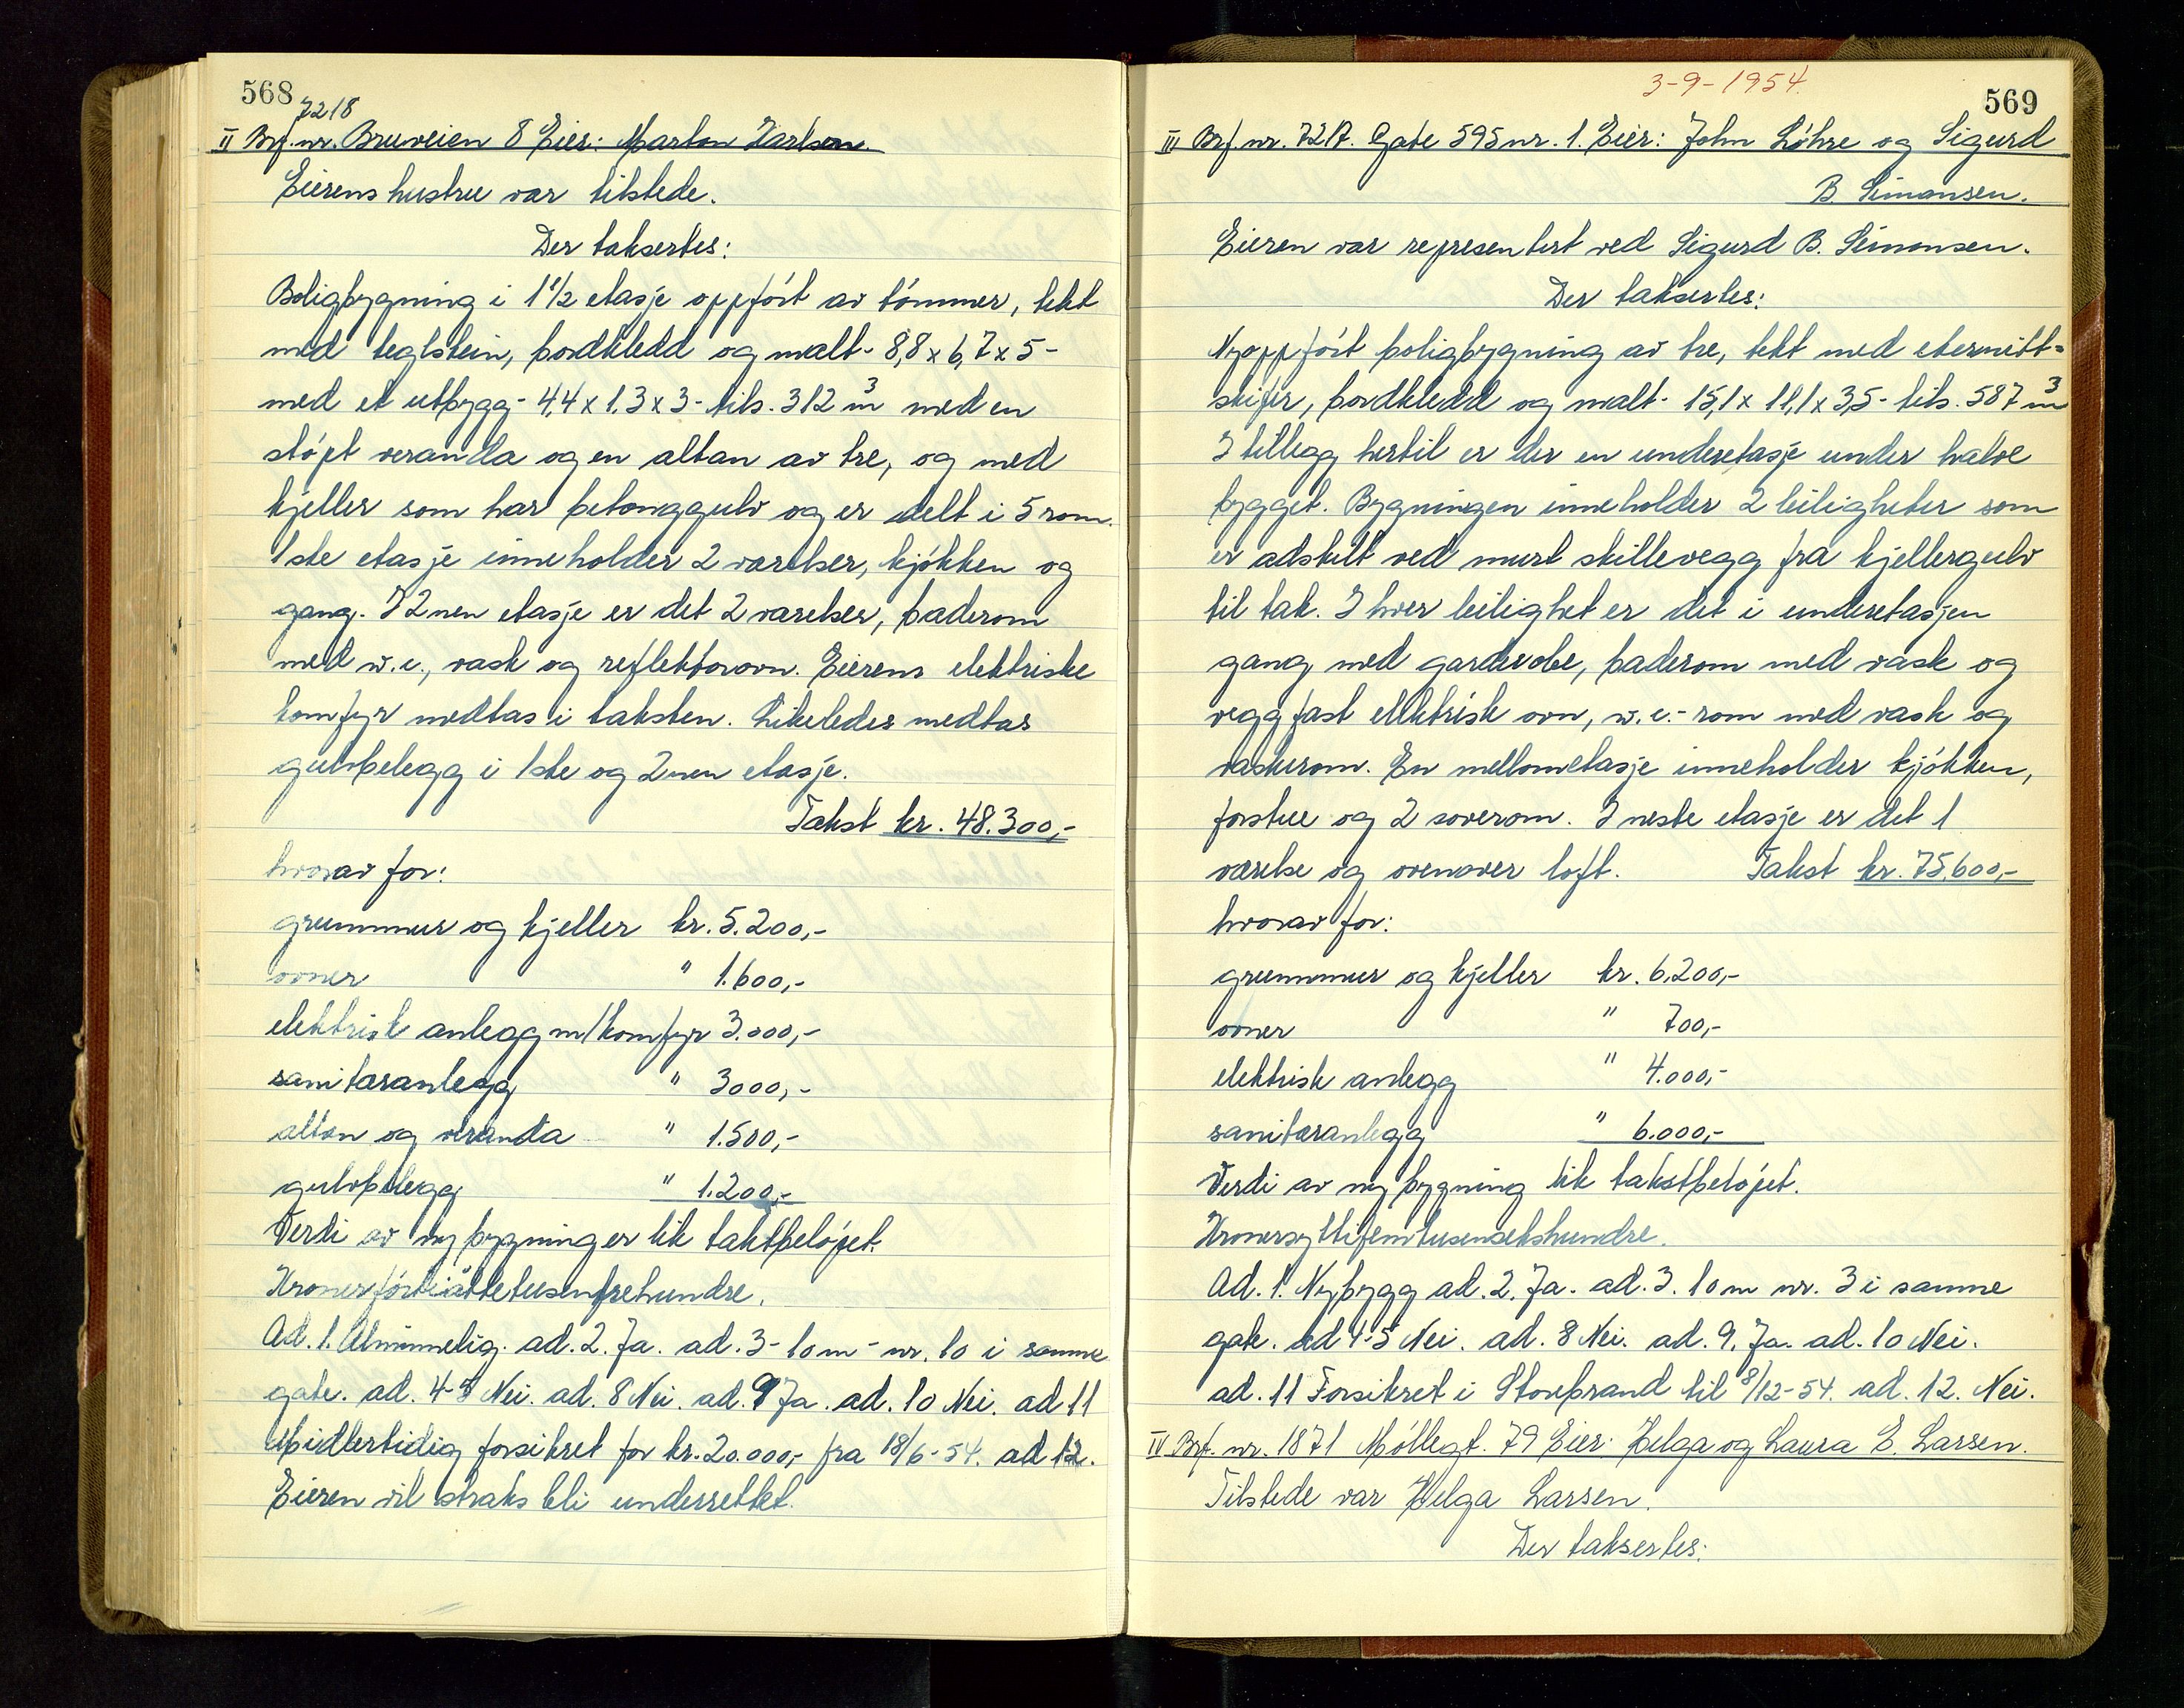 568
7218
II Brf. nr. Bruveien 8 Eier: Marton Karlsen.
Eierens hustru var tilstede.
Der taksertes:
Boligbygning i 1 1/2 etasje oppført av tømmer, tekt
med teglstein, bordkledd og malt - 8,8 x 6,7 x 5 -
med et utbygg - 4,4 x 1,3 x 3 - tils. 312 m³ med en
støpt veranda og en altan av tre, og med
kjeller som har betonggulv og er delt i 5 rom.
1ste etasje inneholder 2 værelser, kjøkken og
gang. I 2nen etasje er det 2 værelser, baderom
med w.c., vask og reflektorovn. Eierens elektriske
komfyr medtas i taksten. Likeledes medtas
gulvbelegg i 1ste og 2nen etasje.
Takst kr. 48.300,-
hvorav for:
grunnmur og kjeller kr. 5.200,-
ovner " 1.600,-
elektrisk anlegg m/komfyr 3.000,-
sanitæranlegg " 3000,-
altan og veranda " 1.500,-
gulvbelegg " 1.200,-
Verdi av ny bygning er lik takstbeløpet.
Kronerførtiåttetusentrehundre.
Ad. 1. Alminnelig. ad. 2. Ja. ad. 3 - 10 m - nr. 10 i samme
gate. ad. 4-5 Nei. ad. 8 Nei. ad. 9 Ja. ad. 10 Nei. ad 11
Midlertidig forsikret for kr. 20.000,- fra 18/6-54. ad 12.
Eieren vil straks bli underrettet.
3-9-1954.
569
III Brf. nr. 7217. Gate 595 nr. 1. Eier: John Løhre og Sigurd
B. Simonsen.
Eieren var representert ved Sigurd B. Simonsen.
Der taksertes:
Nyoppført boligbygning av tre, tekt med eternitt-
skifer, bordkledd og malt - 15,1 x 11,1 x 3,5 - tils. 587 m³
I tillegg hertil er der en underetasje under halve
bygget. Bygningen inneholder 2 leiligheter som
er adskilt ved murt skillevegg fra kjellergulv
til tak. I hver leilighet er det i underetasjen
gang med garderobe, baderom med vask og
veggfast elektrisk ovn, w.c.-rom med vask og
vaskerom. En mellometasje inneholder kjøkken,
forstue og 2 soverom. I neste etasje er det 1
værelse og ovenover loft. Takst kr. 75.600,-
hvorav for:
grunnmur og kjeller kr. 6.200,-
ovner " 700,-
elektrisk anlegg " 4.000,-
sanitæranlegg " 6.000,-
Verdi av ny bygning lik takstbeløpet.
Kronersyttifemtusensekshundre.
Ad. 1. Nybygg ad. 2. Ja. ad. 3. 10 m nr. 3 i samme
gate. ad 4-5 Nei. ad. 8 Nei. ad. 9. Ja. ad. 10 Nei.
ad. 11 Forsikret i Storebrand til 8/12-54. ad. 12. Nei.
IV Brf. nr. 1871 Møllegt. 79 Eier: Helga og Laura E. Larsen.
Tilstede var Helga Larsen.
Der taksertes: